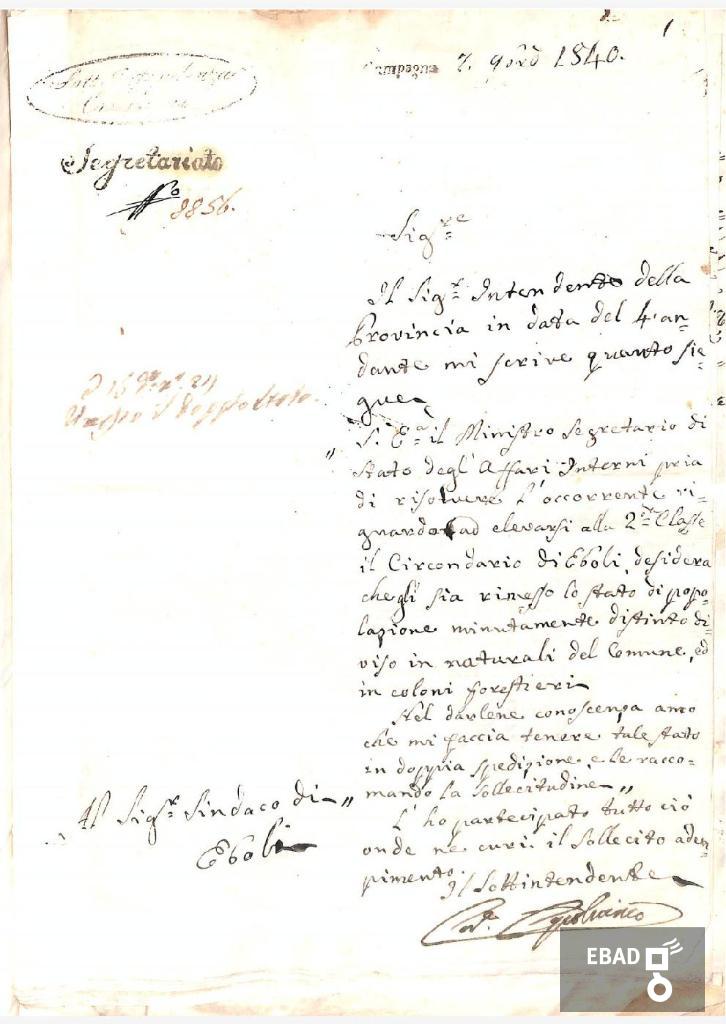 1
Campagna 7. 9bre 1840.
Sott'Intendenza
Segretariato
No 8856.
Sigre
Il Sigr Intendente della
Provincia in data del 4 an-
dante mi scrive quanto sie-
gue
" S. Ea il Ministro Segretario di
Stato degl'Affari Interni pria
di risolvere l'occorrente ri-
guardo ad elevarsi alla 2a Classe
il Circondario di Eboli, desidera
che gli sia rimesso lo stato di popo-
lazione minutamente distinto di-
viso in naturali del Comune, ed
in coloni forestieri
Nel darlene conoscenza amo
che mi faccia tenere tale stato
in doppia spedizione, e le racco-
mando la sollecitudine "
L'ho partecipato tutto ciò
onde ne curi il sollecito adem-
pimento.
Il Sottintendente
Al Sigr Sindaco di
Eboli
EBAD